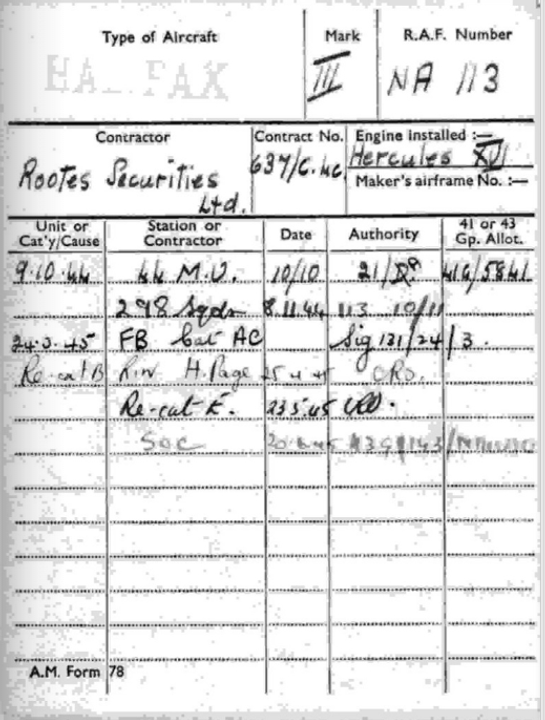 Type of Aircraft Mark R.A.F. Number
HALIFAX III NA 113
Contractor Contract No. Engine installed :—
Rootes Securities Ltd. 637/C.4C Hercules XVI
Maker's airframe No. :—
Unit or Cat'y/Cause Station or Contractor Date Authority 41 or 43 Gp. Allot.
9.10.44 44 M.U. 10/10 21/ 41G/5841
298 Sqdn 8.11.44 113 10/11
24.3.45 FB Cat AC Sig 131/24/3.
Re-cat B R.i.W. H.Page 25 4 45 CRO.
Re-cat E. 23.5.45
SOC 20 6 45
A.M. Form 78